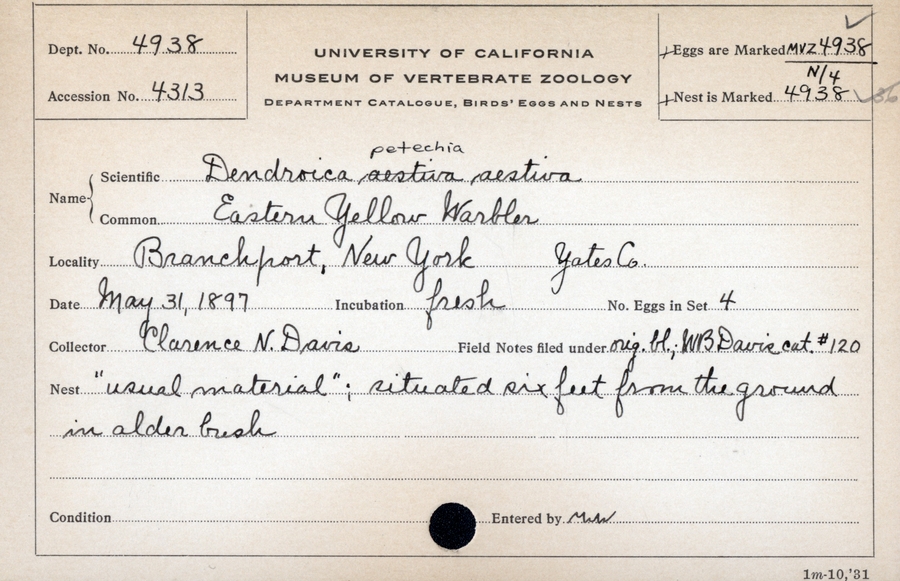 Dept. No. 4938
Accession No. 4313
UNIVERSITY OF CALIFORNIA
MUSEUM OF VERTEBRATE ZOOLOGY
DEPARTMENT CATALOGUE, BIRDS' EGGS AND NESTS
Eggs are Marked MVZ 4938
N/4
Nest is Marked 4938
petechia
Name Scientific Dendroica aestiva aestiva
Common Eastern Yellow Warbler
Locality Branchport, New York Yates Co.
Date May 31, 1897 Incubation fresh No. Eggs in Set 4
Collector Clarence N. Davis Field Notes filed under orig. bl.; WB Davis cat. #120
Nest "usual material"; situated six feet from the ground
in alder bush
Condition Entered by
1m-10,'31